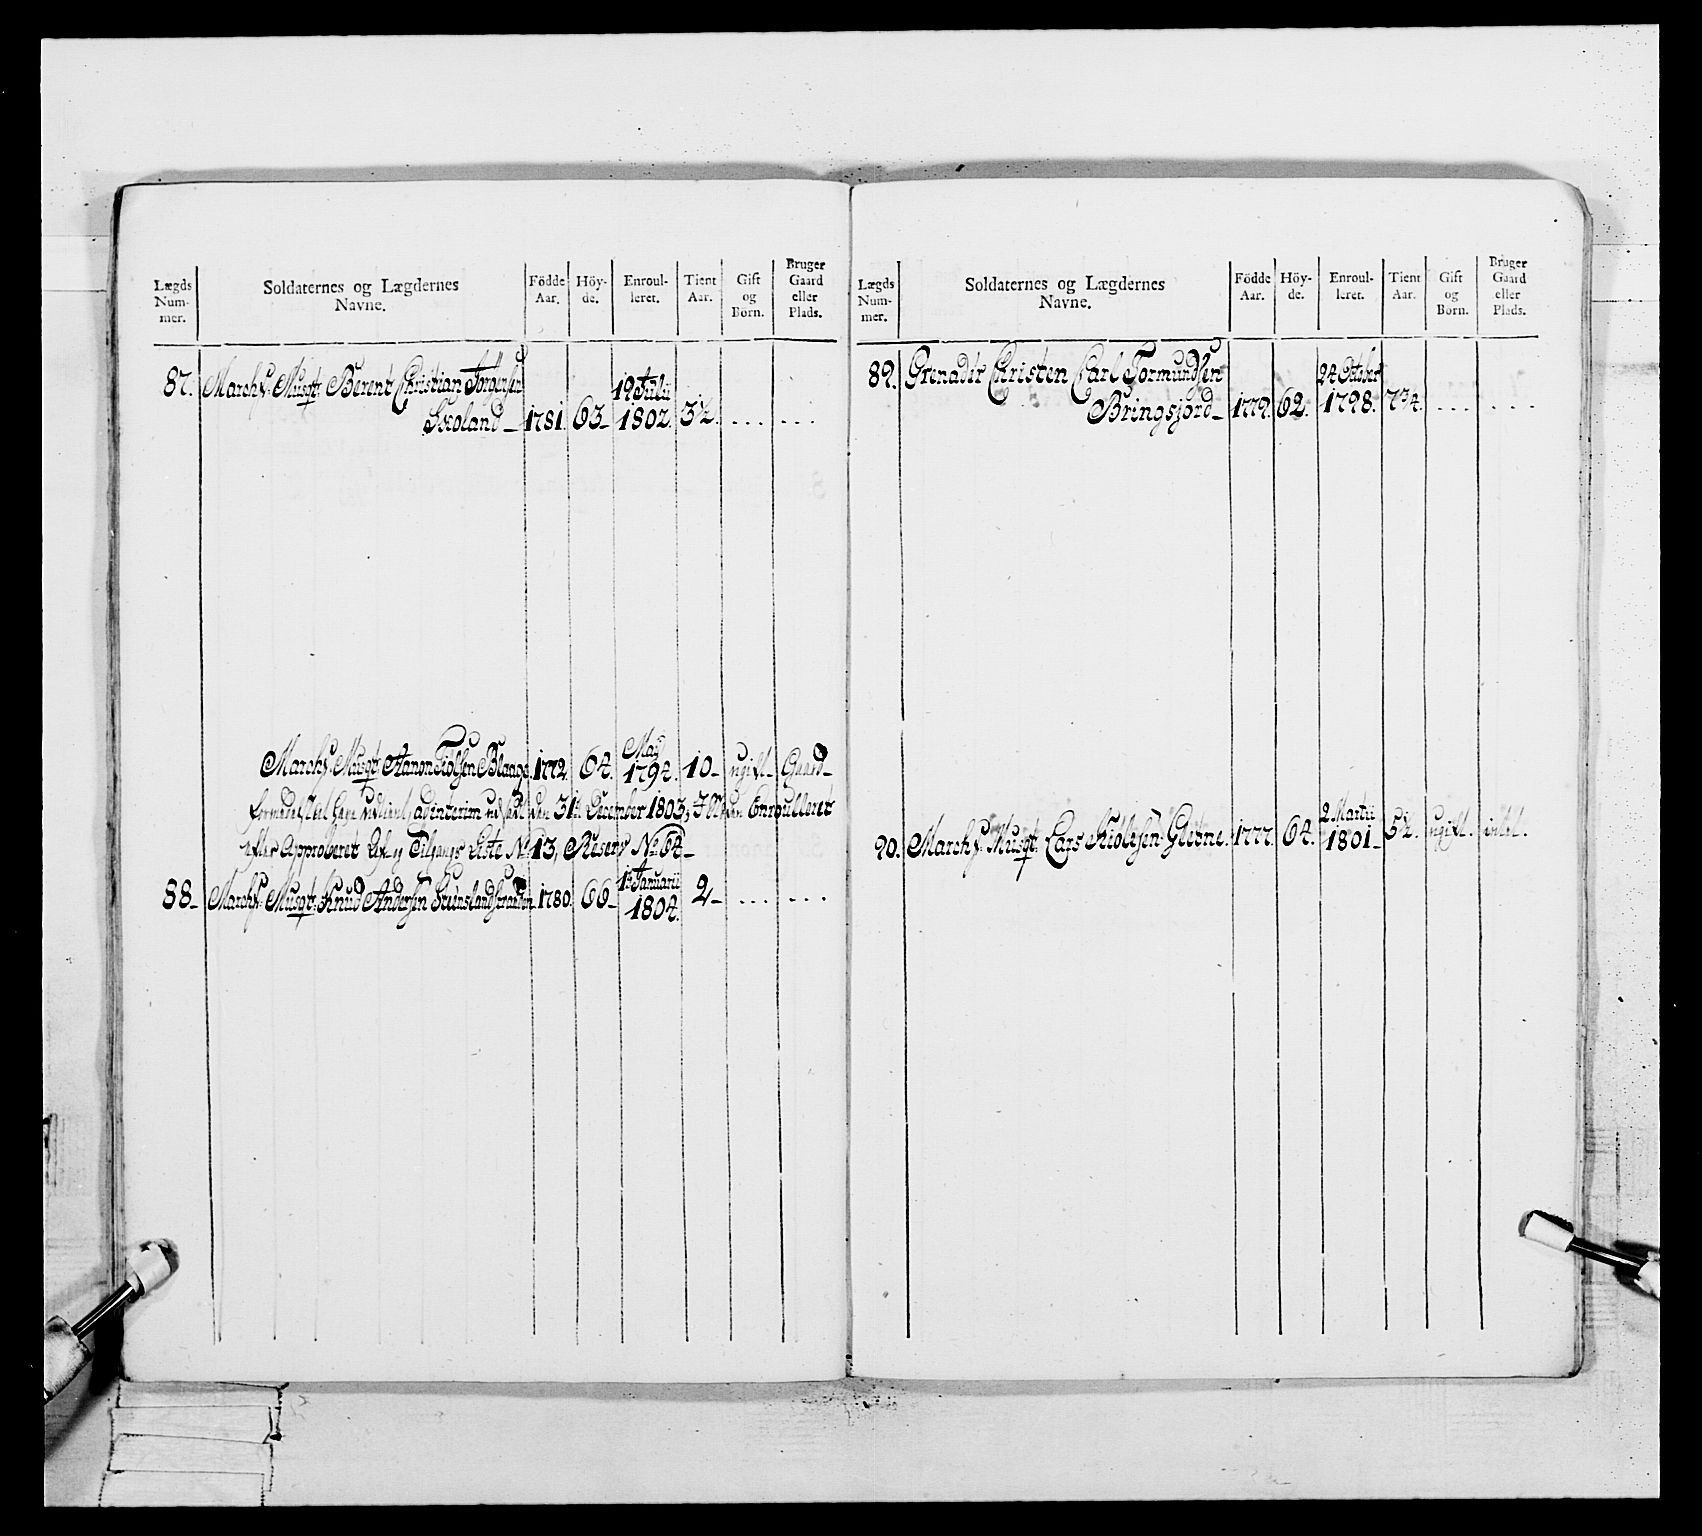 Lægds Num- mer. Soldaternes og Lægdernes Navne. Födde Aar. Höy- de. Enroul- leret. Tient Aar. Gift og Börn. Bruger Gaard eller Plads.
87. March: Musqt: Berent Christian Jörgensen 19 Julii
Skoland 1781. 63 1802. 3½. ... ...
March: Musqt: Aanon 1772. 64. May 1794. 10 ugift Gaard
adinterim den 31te December 1803, Enroulleret
efter Approberet Af- og Tilgangs Liste No 13, Reserv No 64
88 March: Musqt: Knud Andersen 1780. 66 1te Januarii 1804. 2 ... ...
Lægds Num- mer. Soldaternes og Lægdernes Navne. Födde Aar. Höy- de. Enroul- leret. Tient Aar. Gift og Börn. Bruger Gaard eller Plads.
89. Grenadir Christen Carl Tormundsen 24 October
Bringsjord 1779. 62. 1798. 7¾. ... ...
90. March: Musqt: Lars 1777. 64. 2 Martii 1801 5½. ugift.